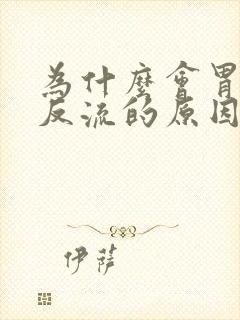 為什麼會胃
反流的原因
伊薩